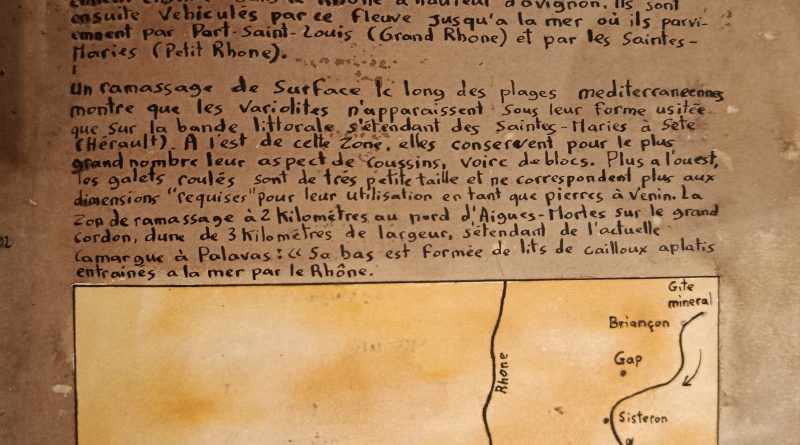 ensuite véhiculés par ce fleuve jusqu'a la mer où ils parvi-
ennent par Port-Saint-Louis (Grand Rhone) et par les Saintes-
Maries (Petit Rhone).
Un ramassage de Surface le long des plages mediterraneennes
montre que les variolites n'apparaissent sous leur forme usitée
que sur la bande littorale s'étendant des Saintes-Maries à Sète
(Hérault). A l'est de cette zone, elles conservent pour le plus
grand nombre leur aspect de coussins, voire de blocs. Plus a l'ouest,
les galets roulés sont de trés petite taille et ne correspondent plus aux
dimensions "requises" pour leur utilisation en tant que pierres à venin. La
Zon de ramassage à 2 Kilométres au nord d'Aigues-Mortes sur le grand
Cordon, dune de 3 Kilométres de largeur, sétendant de l'actuelle
Camargue à Palavas : « Sa bas est formée de lits de cailloux aplatis
entrainés a la mer par le Rhône.
Gite
mineral
Briançon
Rhône
Gap
Sisteron